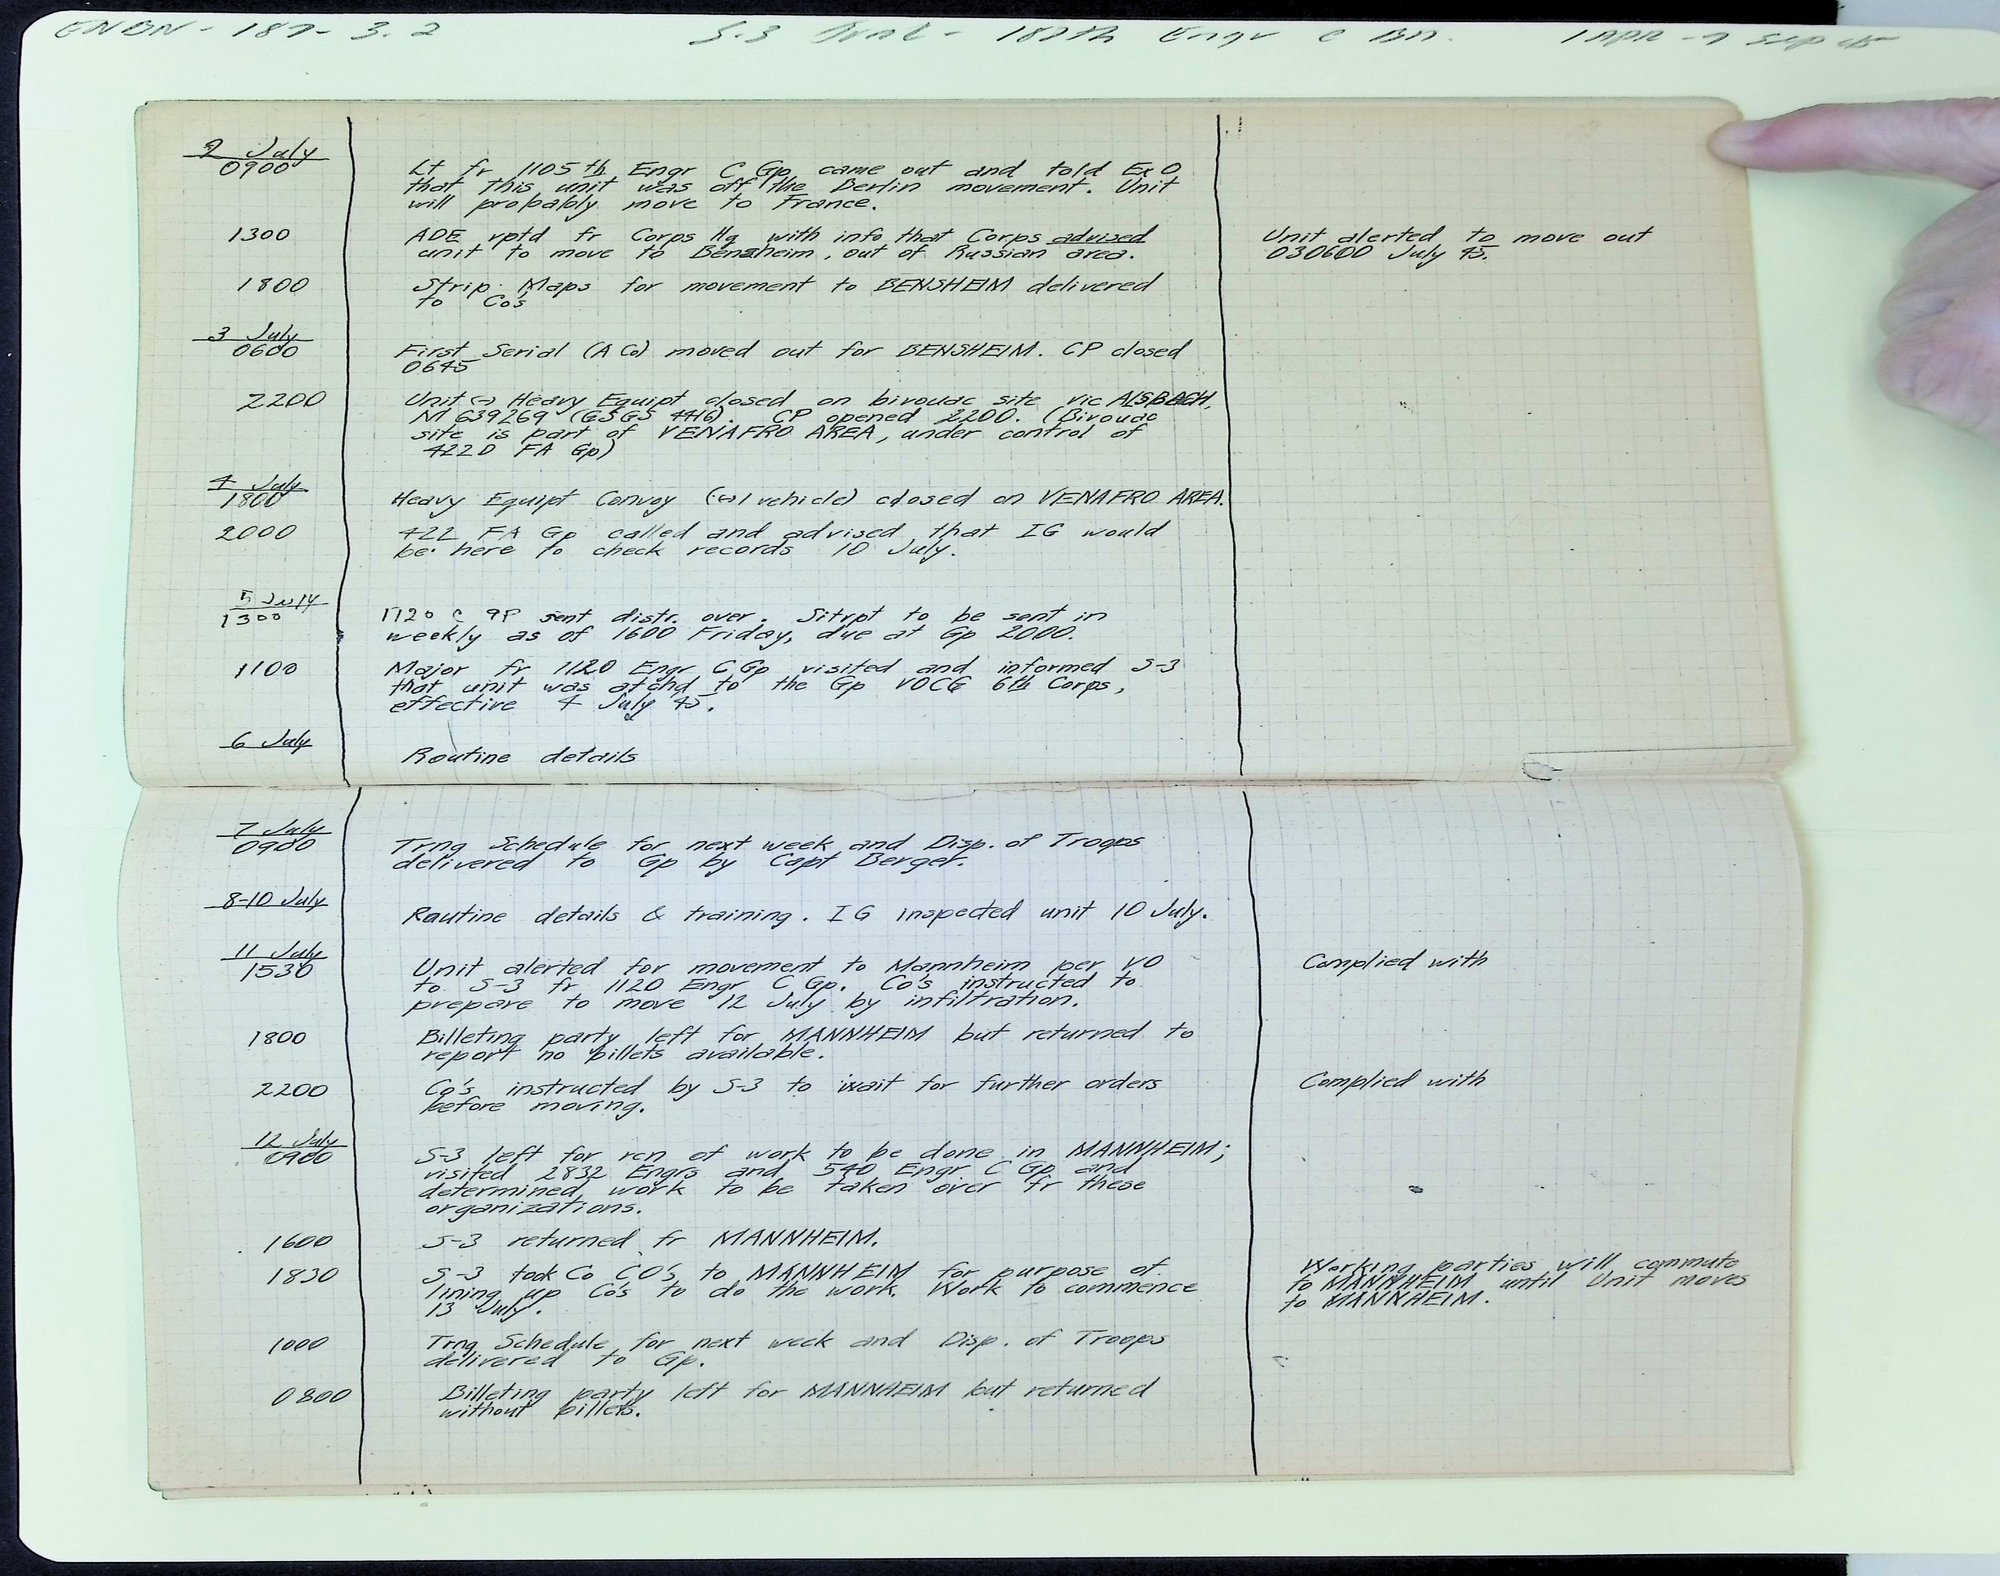 ENBN - 187 - 3.2 S-3 Jrnl - 187th Engr C Bn. 1 Apr - 7 Sep 45
2 July
0900 Lt fr 1105th Engr C Gp came out and told Ex O
that this unit was off the Berlin movement. Unit
will probably move to France.
1300 ADE rptd fr Corps Hq with info that Corps advised Unit alerted to move out
unit to move to Bensheim, out of Russian area. 030600 July 45.
1800 Strip Maps for movement to BENSHEIM delivered
to Co's
3 July
0600 First Serial (A Co) moved out for BENSHEIM. CP closed
0645
2200 Unit (-) Heavy Equipt closed on bivouac site vic ALSBACH,
M 639269 (GSGS 4416). CP opened 2200. (Bivouac
site is part of VENAFRO AREA, under control of
422D FA Gp)
4 July
1800 Heavy Equipt Convoy (-1 vehicle) closed on VENAFRO AREA.
2000 422 FA Gp called and advised that IG would
be here to check records 10 July.
5 July
1300 1120 C gp sent distr. over. Sitrpt to be sent in
weekly as of 1600 Friday, due at Gp 2000.
1100 Major fr 1120 Engr C Gp visited and informed S-3
that unit was atchd to the Gp VOCG 6th Corps,
effective 4 July 45.
6 July
Routine details
7 July
0900 Trng Schedule for next week and Disp. of Troops
delivered to Gp by Capt Berger.
8-10 July
Routine details & training. IG inspected unit 10 July.
11 July
1530 Unit alerted for movement to Mannheim per VO Complied with
to S-3 fr 1120 Engr C Gp. Co's instructed to
prepare to move 12 July by infiltration.
1800 Billeting party left for MANNHEIM but returned to
report no billets available.
2200 Co's instructed by S-3 to wait for further orders Complied with
before moving.
12 July
0900 S-3 left for rcn of work to be done in MANNHEIM;
visited 2832 Engrs and 540 Engr C Gp and
determined work to be taken over fr these
organizations.
1600 S-3 returned fr MANNHEIM.
1830 S-3 took Co CO's to MANNHEIM for purpose of Working parties will commute
lining up Co's to do the work. Work to commence to MANNHEIM until Unit moves
13 July. to MANNHEIM.
1000 Trng Schedule for next week and Disp. of Troops
delivered to Gp.
0800 Billeting party left for MANNHEIM but returned
without billets.